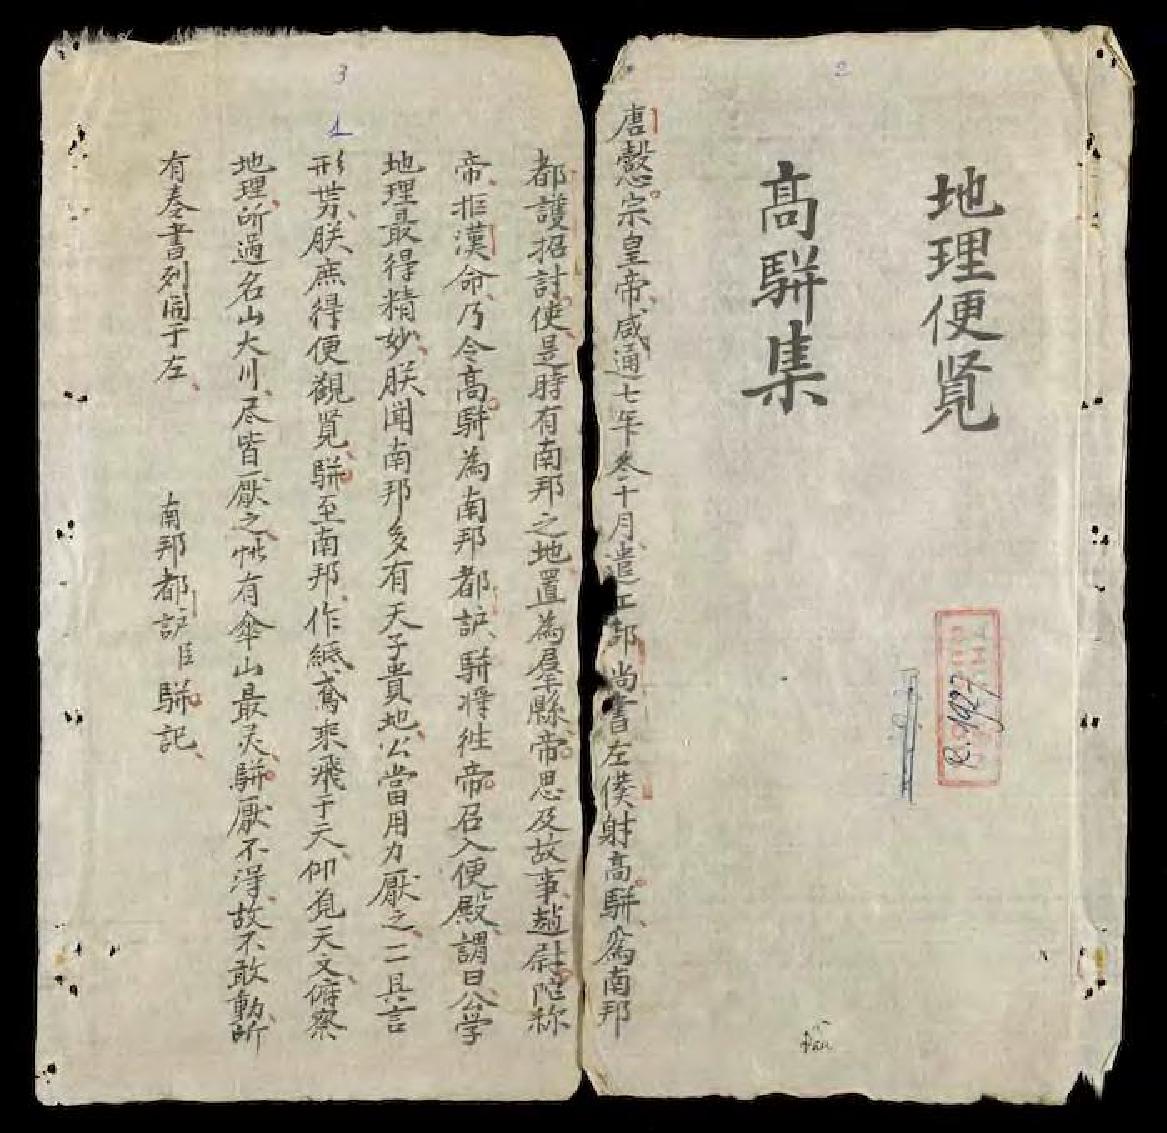 地理便覧
高駢集
2
唐懿宗皇帝咸通七年冬十月遣工部尚書左僕射高駢為南邦
都護招討使是時有南邦之地置為羣縣帝思及故事趙尉陀称
帝拒漢命乃令高駢為南邦都訲駢將徃帝召入便殿謂曰公学
地理最得精妙朕聞南邦多有天子貴地公當用力厭之一一具言
形势朕庶得便觀覧駢至南邦作紙鳶乘飛于天仰覓天文俯察
地理所過名山大川尽皆厭之惟有傘山最灵駢厭不得故不敢動所
有奏書列開于左
南邦都訲臣駢記
3
1
R.1927